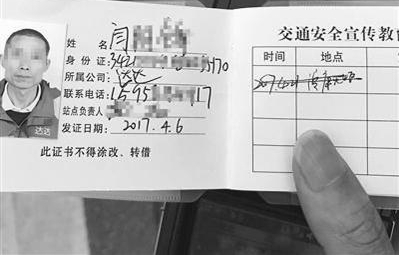 姓 名 闫
身份证: 342 3370
所属公司: 达达
联系电话: 1595 17
站点负责人
发证日期: 2017.4.6
此证书不得涂改、转借
达达
交通安全宣传教育
时间 地点